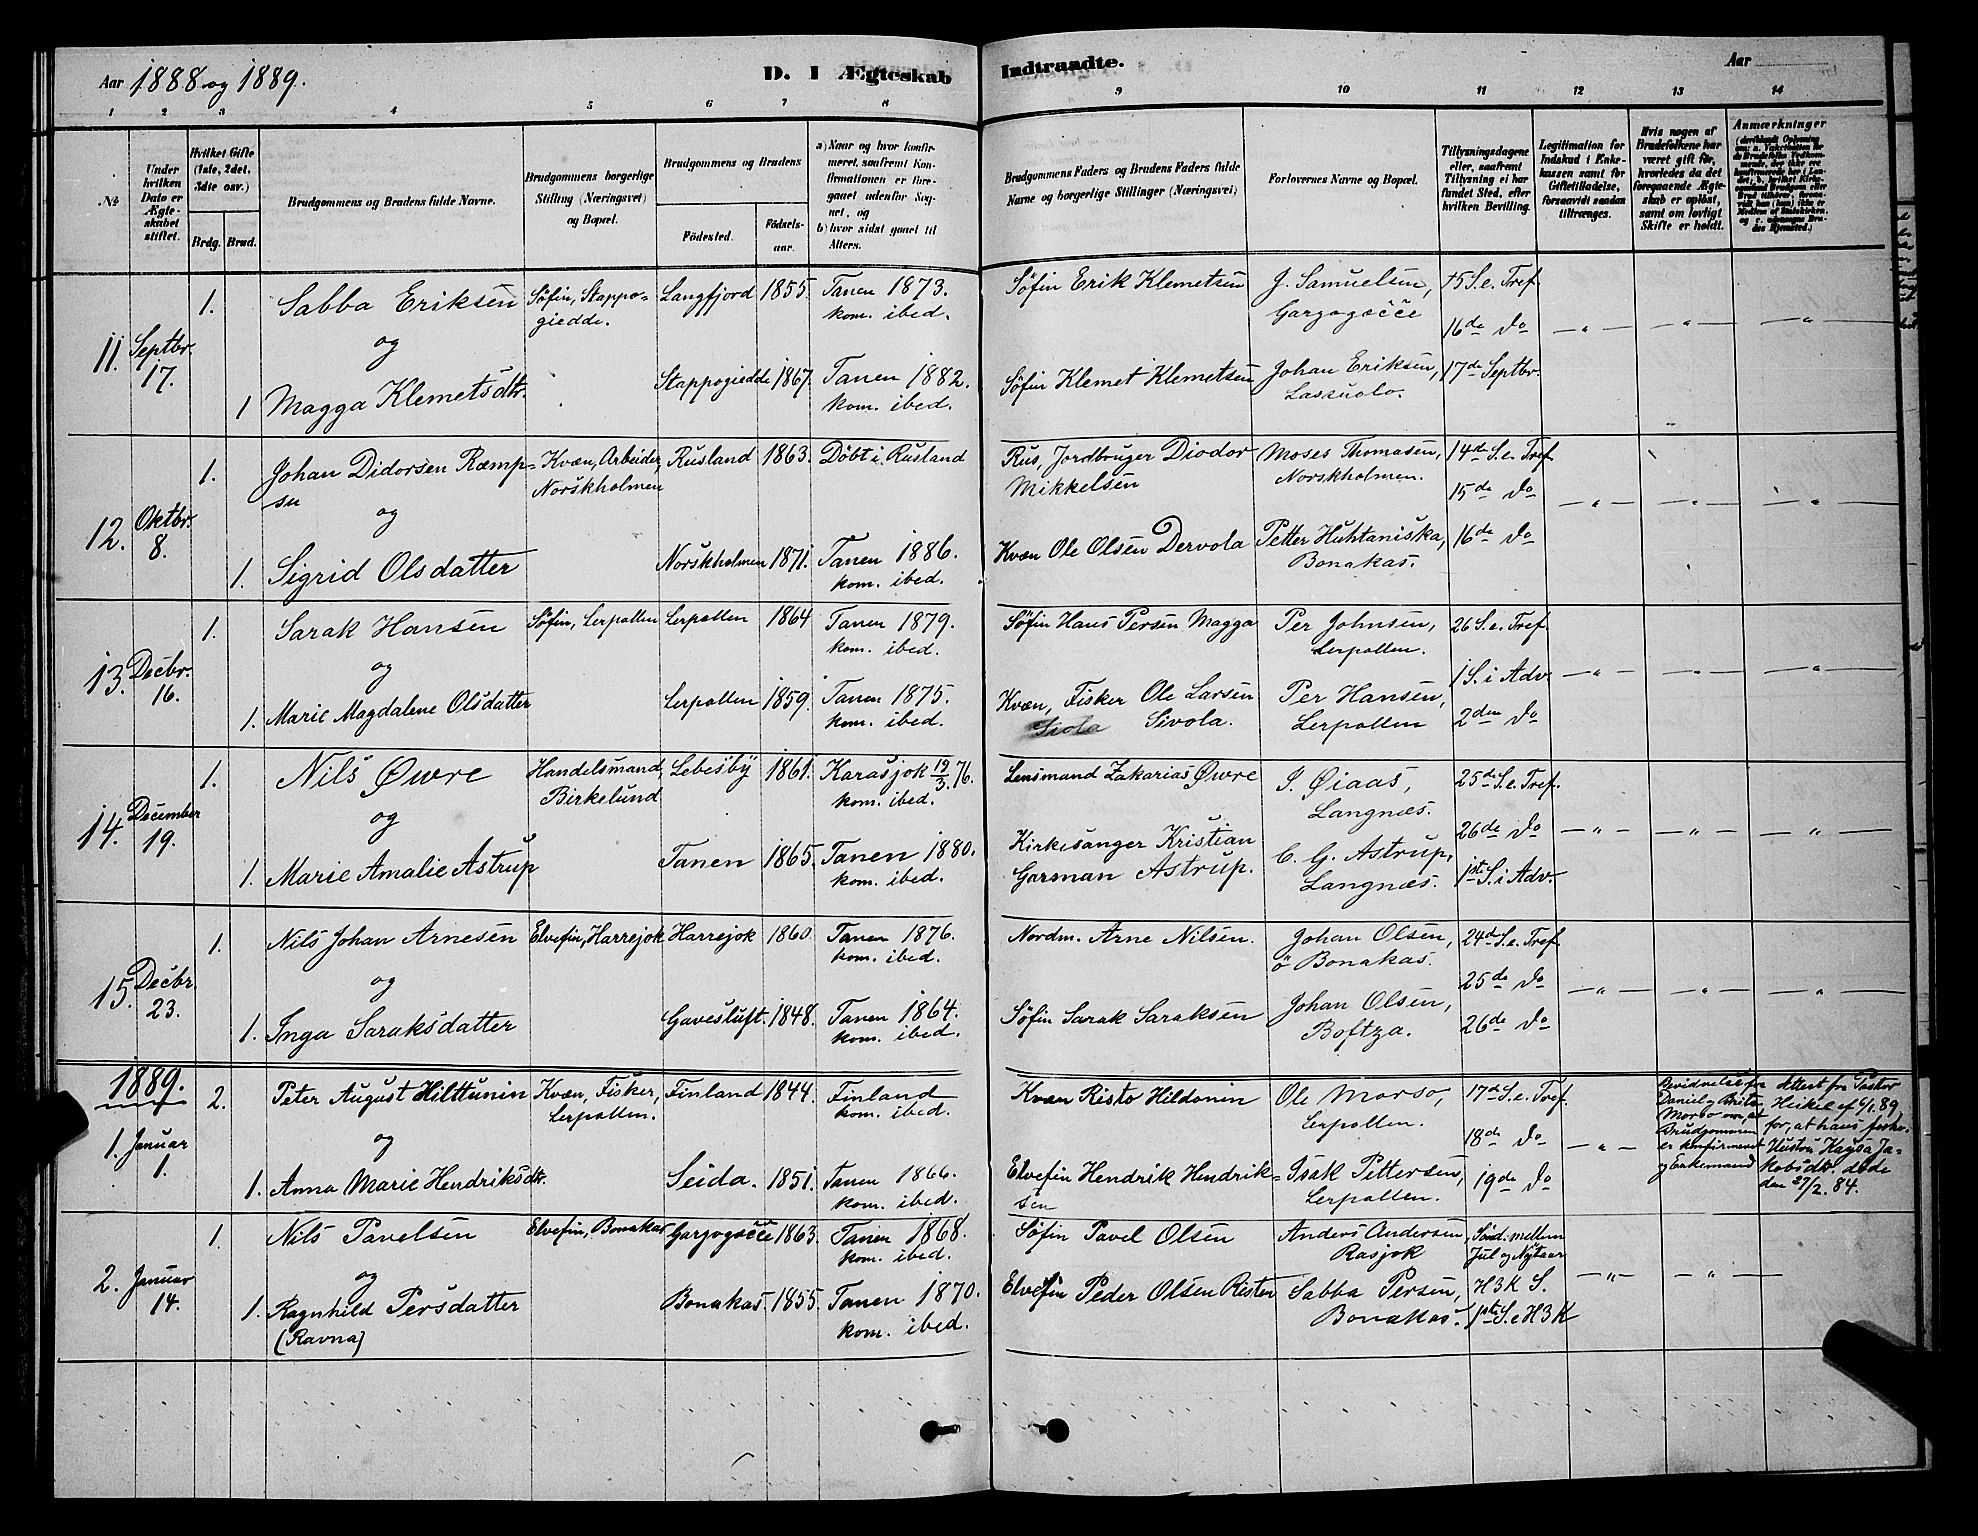 Aar 1888 og 1889.
D. I Ægteskab Indtraadte.
Aar
1 2 3 4 5 6 7 8 9 10 11 12 13 14
No.
Under hvilken Dato er Ægteskabet stiftet.
Hvilket Gifte (1ste, 2det, 3die osv.)
Brdg. Brud.
Brudgommens og Brudens fulde Navne.
Brudgommens borgerlige Stilling (Næringsvei) og Bopæl.
Brudgommens og Brudens
Fødested.
Fødselsaar.
a) Naar og hvor konfirmeret, saafremt Konfirmationen er foregaaet udenfor Sognet, og
b) hvor sidst gaaet til Alters.
Brudgommens Faders og Brudens Faders fulde Navne og borgerlige Stillinger (Næringsvei)
Forlovernes Navne og Bopæl.
Tillysningsdagene eller, saafremt Tillysning ei har fundet Sted, efter hvilken Bevilling.
Legitimation for Indskud i Enkekassen samt for Giftetilladelse, forsaavidt saadan tiltrænges.
Hvis nogen af Brudefolkene har været gift før, hvorledes da det foregaaende Ægteskab er opløst, samt om lovligt Skifte er holdt.
Anmærkninger
11. Septbr. 17.
1. Sabba Eriksen
Søfin, Stappogiedde.
Langfjord 1855. Tanen 1873. kom. ibed.
Søfin Erik Klemetsen
J. Samuelsen, Gargogočče
15 S. e. Tref. 16de do 17de Septbr.
og
1 Magga Klemetsdtr.
Stappogiedde 1867. Tanen 1882. kom. ibed.
Søfin Klemet Klemetsen
Johan Eriksen, Lassuolo.
12. Oktbr. 8.
1. Johan Didorsen Ræmpsu
Kvæn, Arbeider, Norskholmen
Rusland 1863. Döbt i Rusland
Rus, Jordbruger Diodor Mikkelsen
Moses Thomasen, Norskholmen.
14de S. e. Tref. 15de do 16de do
og
1. Sigrid Olsdatter
Norskholmen 1871. Tanen 1886. kom. ibed.
Kvæn Ole Olsen Dervola
Petter Huhtaniska, Bonakas.
13. Decbr. 16.
1. Sarak Hansen
Søfin, Lerpollen
Lerpollen 1864 Tanen 1879. kom. ibed.
Søfin Hans Persen Magga
Per Johnsen, Lerpollen.
26 S. e. Tref. 1 S. i Adv. 2den do
og
1. Marie Magdalene Olsdatter
Lerpollen 1859. Tanen 1875. kom. ibed.
Kvæn, Fisker Ole Larsen Sivola.
Per Hansen, Lerpollen
14. December 19.
1. Nils Øwre
Handelsmand, Birkelund
Lebesby 1861. Karasjok 19/3 76. kom. ibed.
Lensmand Zakarias Øwre
I. Øiaas, Langnæs.
25de S. e. Tref. 26de do 1ste S. i Adv.
og
1. Marie Amalie Astrup
Tanen 1865. Tanen 1880. kom. ibed.
Kirkesanger Kristian Garman Astrup.
C. G. Astrup, Langnæs.
15. Decbr. 23.
1. Nils Johan Arnesen
Elvefin, Harrejok
Harrejok 1860. Tanen 1876. kom. ibed.
Nordm. Arne Nilsen.
Johan Olsen, ö Bonakas.
24de S. e. Tref. 25de do 26de do
og
1. Inga Saraksdatter
Gavesluft. 1848. Tanen 1864. kom. ibed.
Søfin Sarak Saraksen
Johan Olsen, Boftza.
1889.
1. Januar 1.
2. Peter August Hilttunin
Kvæn, Fisker, Lerpollen.
Finland 1844. Finland kom. ibed.
Kvæn Risto Hildonin
Ole Morso, Lerpollen.
17de S. e. Tref. 18de do 19de do
Bevidnelse fra Daniel og Brita Morso om, at Brudgommen er konfirmeret og Enkemand
Attest fra Pastor Heikel af 6/1.89 for, at hans forhe. Hustru Kaysa Jakobsdtr. døde den 27/2.84.
og
1. Anna Marie Hendriksdtr.
Seida. 1851. Tanen 1866. kom. ibed.
Elvefin Hendrik Hendriksen
Isak Pettersen, Lerpollen.
2. Januar 14.
1. Nils Pavelsen
Elvefin, Bonakas
Gargogočče 1863. Tanen 1868. kom. ibed.
Søfin Pavel Olsen
Anders Andersen, Rasjok
Sønd. mellem Jul og Nytaar H3K S. 1ste S. e H3K
og
1. Ragnhild Persdatter (Ravna)
Bonakas. 1855. Tanen 1870. kom. ibed.
Elvefin Peder Olsen Risten
Sabba Persen, Bonakas.